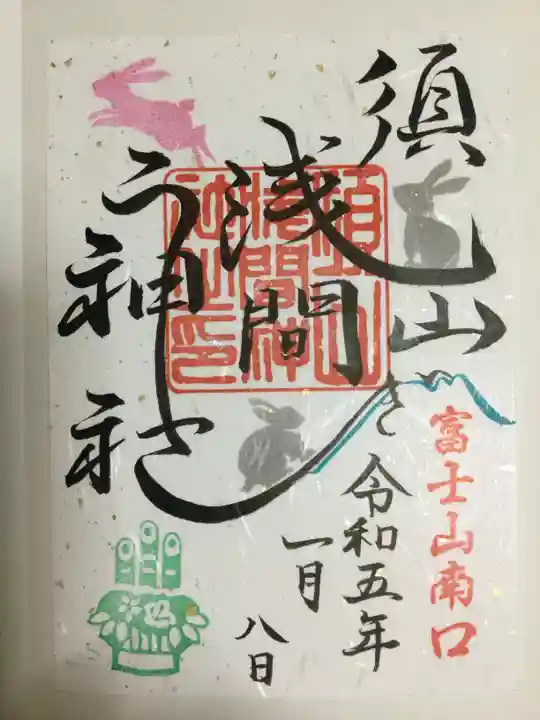 須山
浅間
神社
うさぎ
須山
淺間神
社之印
富士山南口
令和五年
一月
八日